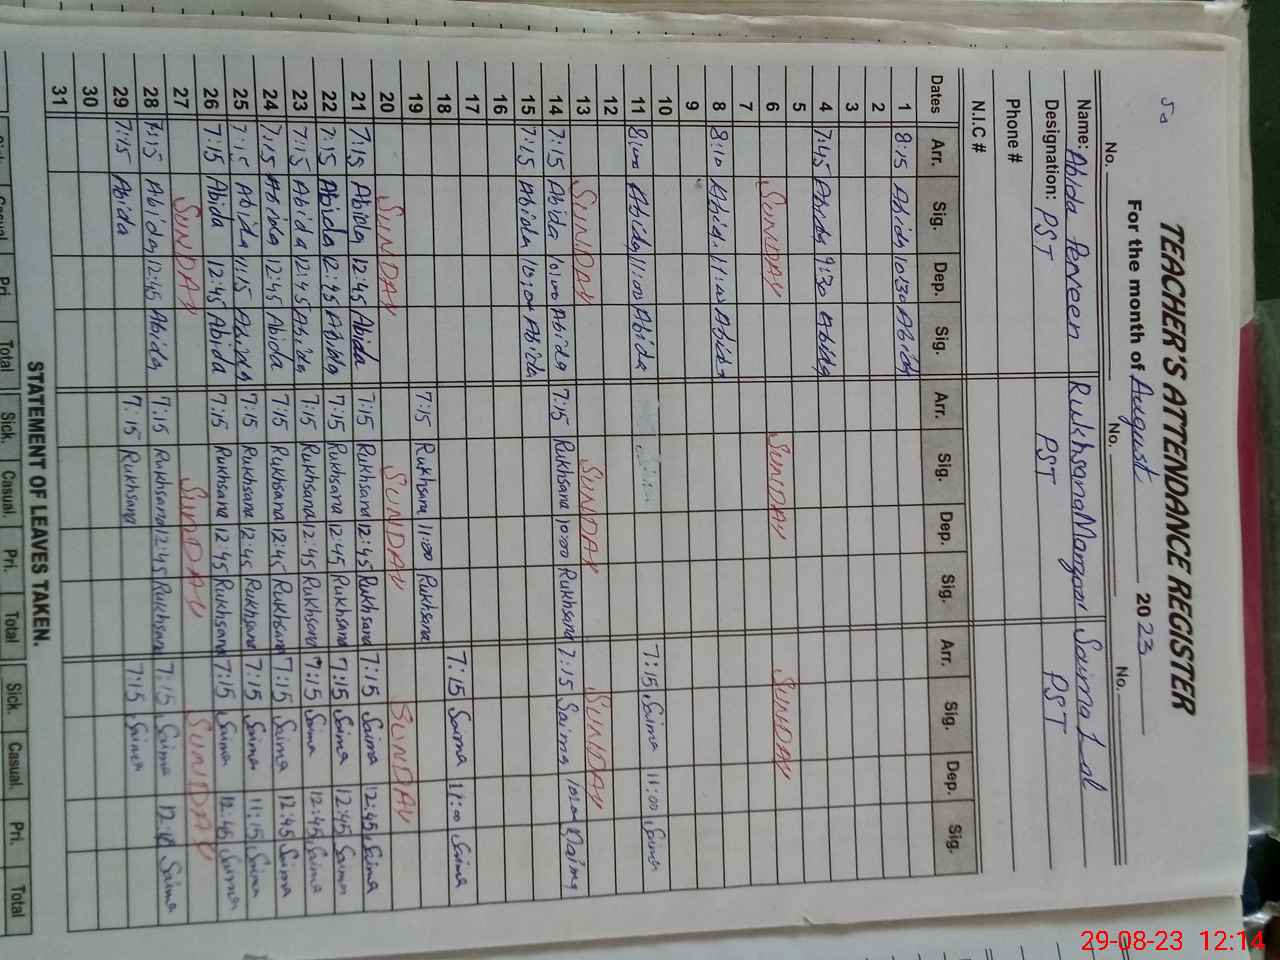 50
TEACHER'S ATTENDANCE REGISTER
For the month of August 2023
No. No. No.
Name: Abida Perveen Rukhsana Saima
Designation: PST PST PST
Phone #
N.I.C #
Dates Arr. Sig. Dep. Sig. Arr. Sig. Dep. Sig. Arr. Sig. Dep. Sig.
1 8:15 Abida 10:30 Abida
2
3
4 7:45 Abida 9:30 Abida
5
6 SUNDAY SUNDAY SUNDAY
7
8 8:10 Abida 11:00 Abida
9
10 7:15 Saima 11:00 Saima
11 8:00 Abida 11:00 Abida
12
13 SUNDAY SUNDAY SUNDAY
14 7:15 Abida 10:00 Abida 7:15 Rukhsana 10:00 Rukhsana 7:15 Saima 10:00 Saima
15 7:15 Abida 10:00 Abida
16
17
18 7:15 Saima 11:00 Saima
19 7:15 Rukhsana 11:00 Rukhsana
20 SUNDAY SUNDAY SUNDAY
21 7:15 Abida 12:45 Abida 7:15 Rukhsana 12:45 Rukhsana 7:15 Saima 12:45 Saima
22 7:15 Abida 12:45 Abida 7:15 Rukhsana 12:45 Rukhsana 7:15 Saima 12:45 Saima
23 7:15 Abida 12:45 Abida 7:15 Rukhsana 12:45 Rukhsana 7:15 Saima 12:45 Saima
24 7:15 Abida 12:45 Abida 7:15 Rukhsana 12:45 Rukhsana 7:15 Saima 12:45 Saima
25 7:15 Abida 11:15 Abida 7:15 Rukhsana 12:45 Rukhsana 7:15 Saima 11:15 Saima
26 7:15 Abida 12:45 Abida 7:15 Rukhsana 12:45 Rukhsana 7:15 Saima 12:45 Saima
27 SUNDAY SUNDAY SUNDAY
28 7:15 Abida 12:45 Abida 7:15 Rukhsana 12:45 Rukhsana 7:15 Saima Saima
29 7:15 Abida 7:15 Rukhsana 7:15 Saima
30
31
STATEMENT OF LEAVES TAKEN.
Casual Pri Total Sick. Casual. Pri. Total Sick. Casual. Pri. Total
29-08-23 12:14